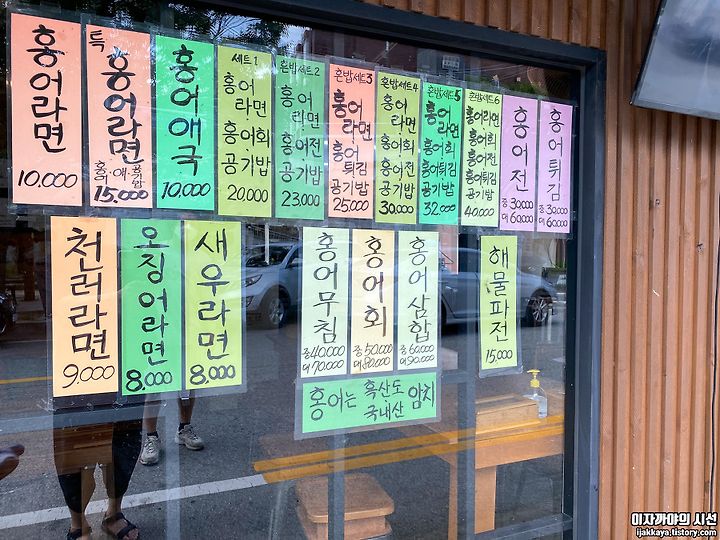 홍어라면
10.000
특
홍어라면
15.000
홍어애국
10.000
세트1
홍어
라면
홍어회
공기밥
20.000
혼밥세트2
홍어
라면
홍어전
공기밥
23.000
혼밥세트3
홍어
라면
홍어튀김
공기밥
25.000
혼밥세트4
홍어
라면
홍어회
홍어전
공기밥
30.000
혼밥세트5
홍어라면
홍어회
홍어튀김
공기밥
32.000
혼밥세트6
홍어라면
홍어회
홍어전
홍어튀김
공기밥
40.000
홍어전
중 30.000
대 60.000
홍어튀김
중 30.000
대 60.000
천러라면
9.000
오징어라면
8.000
새우라면
8.000
홍어무침
중 40.000
대 70.000
홍어회
중 50.000
대 80.000
홍어삼합
중 60.000
대 90.000
해물파전
15.000
홍어는 흑산도
국내산
암치
이자까야의 시선
ijakkaya.tistory.com